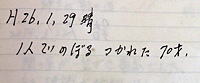 H26,1,29 晴
1人でのぼる つかれた 70才.